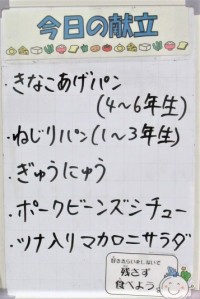 今日の献立
・きなこあげパン
(4〜6年生)
・ねじりパン(1〜3年生)
・ぎゅうにゅう
・ポークビーンズシチュー
・ツナ入りマカロニサラダ
好ききらいをしないで
残さず
食べよう